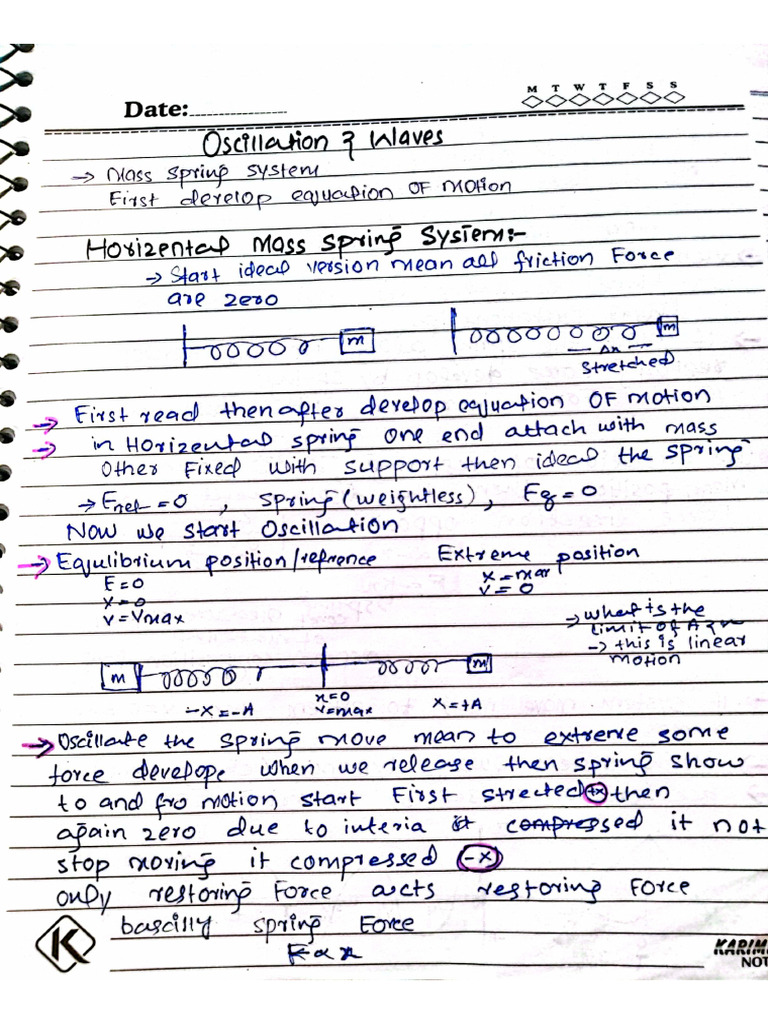 M T W T F S S
Date:
Oscillation & Waves
→ Mass spring system
First develop equation OF motion
Horizental Mass Spring System:-
→ Start ideal version mean all friction Force
are zero
m
m
Δx
stretched
→ First read then after develop equation OF motion
→ in Horizental spring one end attach with mass
Other Fixed with support then ideal the spring
→ Fnet = 0 , spring (weightless) , Fg = 0
Now we start Oscillation
→ Equlibrium position/refrence Extreme position
F = 0 x = max
x = 0 v = 0
v = Vmax
→ what is the
limit of
→ this is linear
motion
m m
x=0
-x = -A v=max x = +A
→ Oscillate the spring move mean to extreme some
force develope when we release then spring show
to and fro motion start First strected +x then
again zero due to interia it compressed it not
stop moving it compressed -x
only restoring Force acts restoring Force
bascilly spring Force
F ∝ x
K
KARIM
NOT